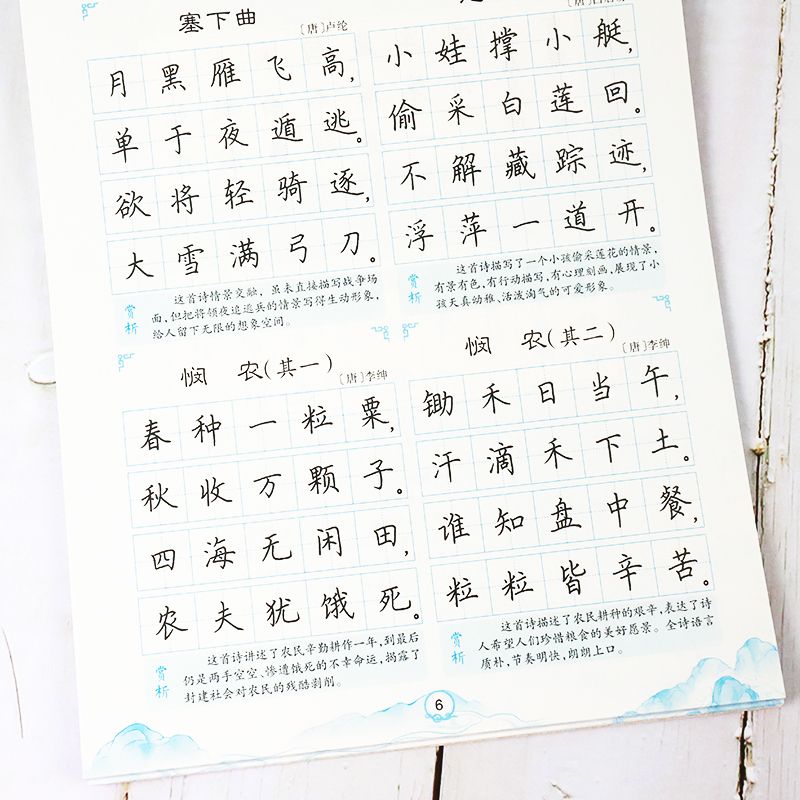 塞下曲
〔唐〕卢纶
月黑雁飞高，
单于夜遁逃。
欲将轻骑逐，
大雪满弓刀。
赏析
这首诗情景交融，虽未直接描写战争场
面，但把将领夜追逃兵的情景写得生动形象，
给人留下无限的想象空间。
小娃撑小艇，
偷采白莲回。
不解藏踪迹，
浮萍一道开。
赏析
这首诗描写了一个小孩偷采莲花的情景，
有景有色，有行动描写，有心理刻画，展现了小
孩天真幼稚、活泼淘气的可爱形象。
悯 农（其一）
〔唐〕李绅
春种一粒粟，
秋收万颗子。
四海无闲田，
农夫犹饿死。
赏析
这首诗讲述了农民辛勤耕作一年，到最后
仍是两手空空、惨遭饿死的不幸命运，揭露了
封建社会对农民的残酷剥削。
悯 农（其二）
〔唐〕李绅
锄禾日当午，
汗滴禾下土。
谁知盘中餐，
粒粒皆辛苦。
赏析
这首诗描述了农民耕种的艰辛，表达了诗
人希望人们珍惜粮食的美好愿景。全诗语言
质朴，节奏明快，朗朗上口。
6